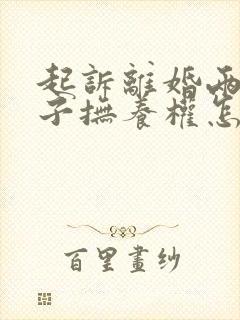 起訴離婚兩
子撫養權怎
百里畫紗